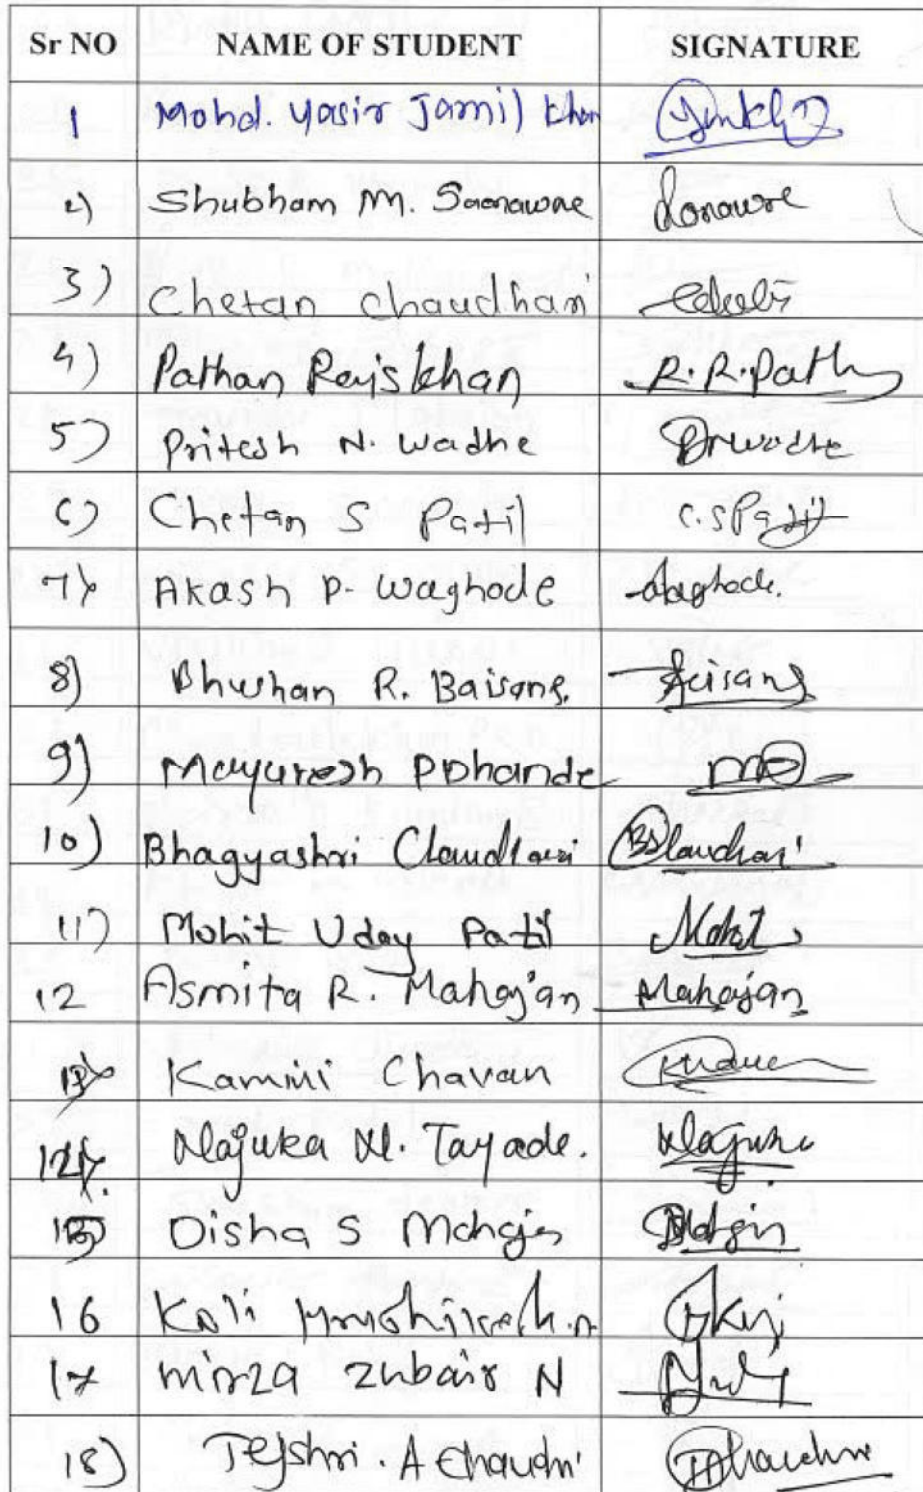 Sr NO NAME OF STUDENT SIGNATURE
1 Mohd. Yasir Jamil Khan
2) Shubham M. Sonawane Sonawne
3) Chetan Chaudhari
4) Pathan Raiskhan R.R.Path
5) Pritesh N. Wadhe PNwadhe
6) Chetan S Patil C.S Patil
7) Akash P. Waghode Waghode.
8) Bhushan R. Baisane. Baisane
9) Mayuresh P Dhande
10) Bhagyashri Chaudhari BSChaudhari
11) Mohit Uday Patil Mohit
12 Asmita R. Mahajan Mahajan
13) Kamini Chavan
14) Najuka N. Tayade. Najuka
15) Disha S Mahajan
16 Koli Hrushikesh.
17 Mirza Zubair N
18) Tejshri. A Chaudhri TAChaudhri